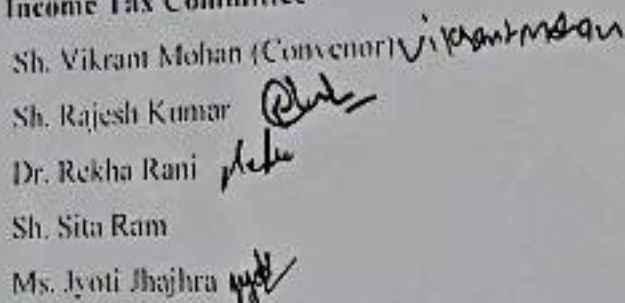 Income Tax Committee
Sh. Vikram Mohan (Convenor) Vikrant Mohan
Sh. Rajesh Kumar
Dr. Rekha Rani
Sh. Sita Ram
Ms. Jyoti Jhajhra